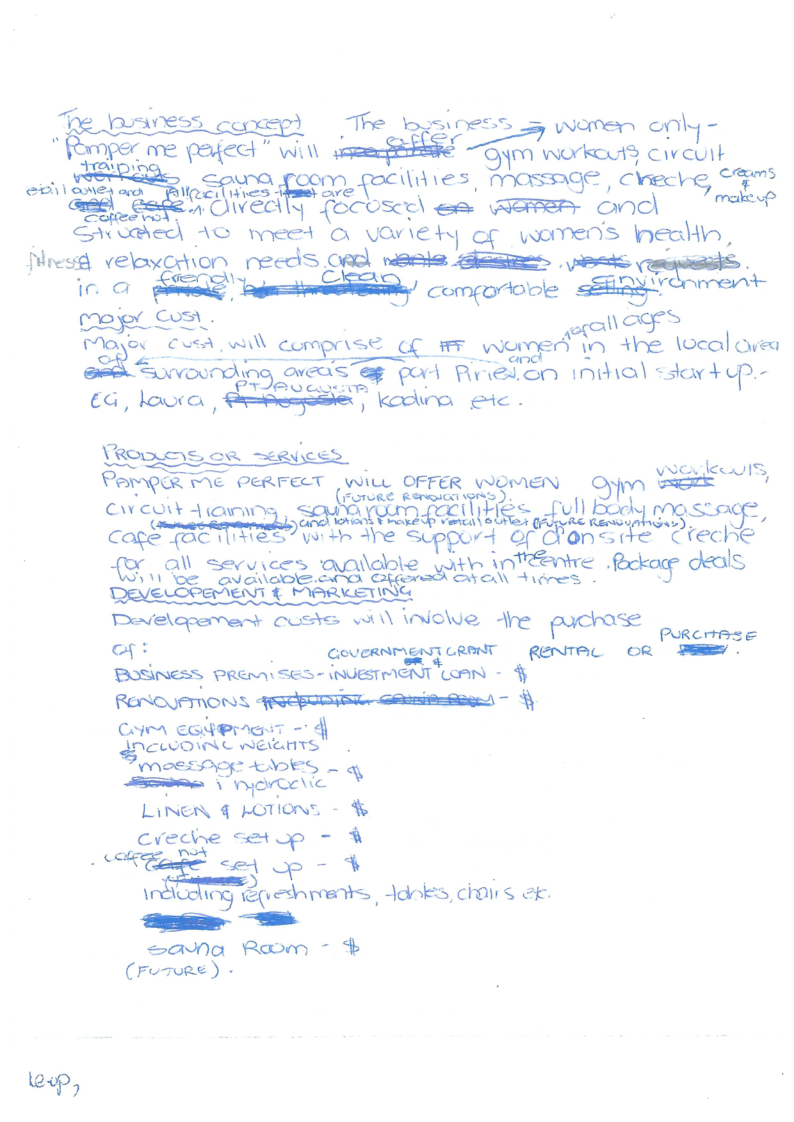 The business concept The business = women only -
"Pamper me perfect" will offer gym workouts, circuit
training sauna room facilities, massage, cheche, creams & makeup
retail outlet and coffee hut. All facilities are directly focused and
Structed to meet a variety of women's health,
fitness & relaxation needs.
in a friendly, clean comfortable environment
Major Cust.
Major Cust. will comprise of women of all ages in the local area
of and surrounding areas port Pirie. on initial start up.-
EG, Laura, PT AUGUSTA, kadina etc.
PRODUCTS OR SERVICES
PAMPER ME PERFECT WILL OFFER WOMEN gym workouts,
circuit training, sauna room facilities (FUTURE RENOVATIONS). full body massage,
cafe facilities and lotions & makeup retail outlet (FUTURE RENOVATIONS). with the support of onsite creche
for all services available with in the centre. Package deals
will be available and offered at all times.
DEVELOPEMENT & MARKETING
Developement custs will involve the purchase
of:
GOVERNMENT GRANT & RENTAL OR PURCHASE.
BUSINESS PREMISES - INVESTMENT LOAN - $
RENOVATIONS - $
GYM EQUIPMENT - $
INCLUDING WEIGHTS
massage tables - $
hydrolic
LINEN & LOTIONS - $
creche set up - $
coffee hut set up - $
including refreshments, tables, chairs etc.
Sauna Room - $
(FUTURE).